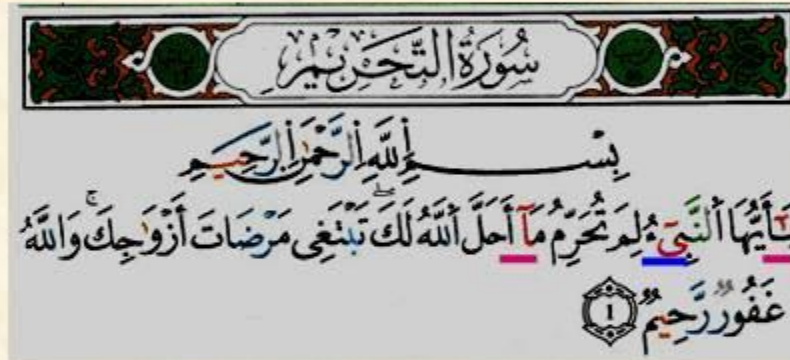 سُورَةُ التَّحْرِيمِ
بِسْمِ اِللَّهِ اِلرَّحْمَٰنِ اِلرَّحِيمِ
يَٰٓأَيُّهَا اَلنَّبِىٓءُ لِمَ تُحَرِّمُ مَآ أَحَلَّ اَللَّهُ لَكَۖ تَبْتَغِى مَرْضَاتَ أَزْوَٰجِكَۚ وَاللَّهُ
غَفُورٌ رَّحِيمٌ ١